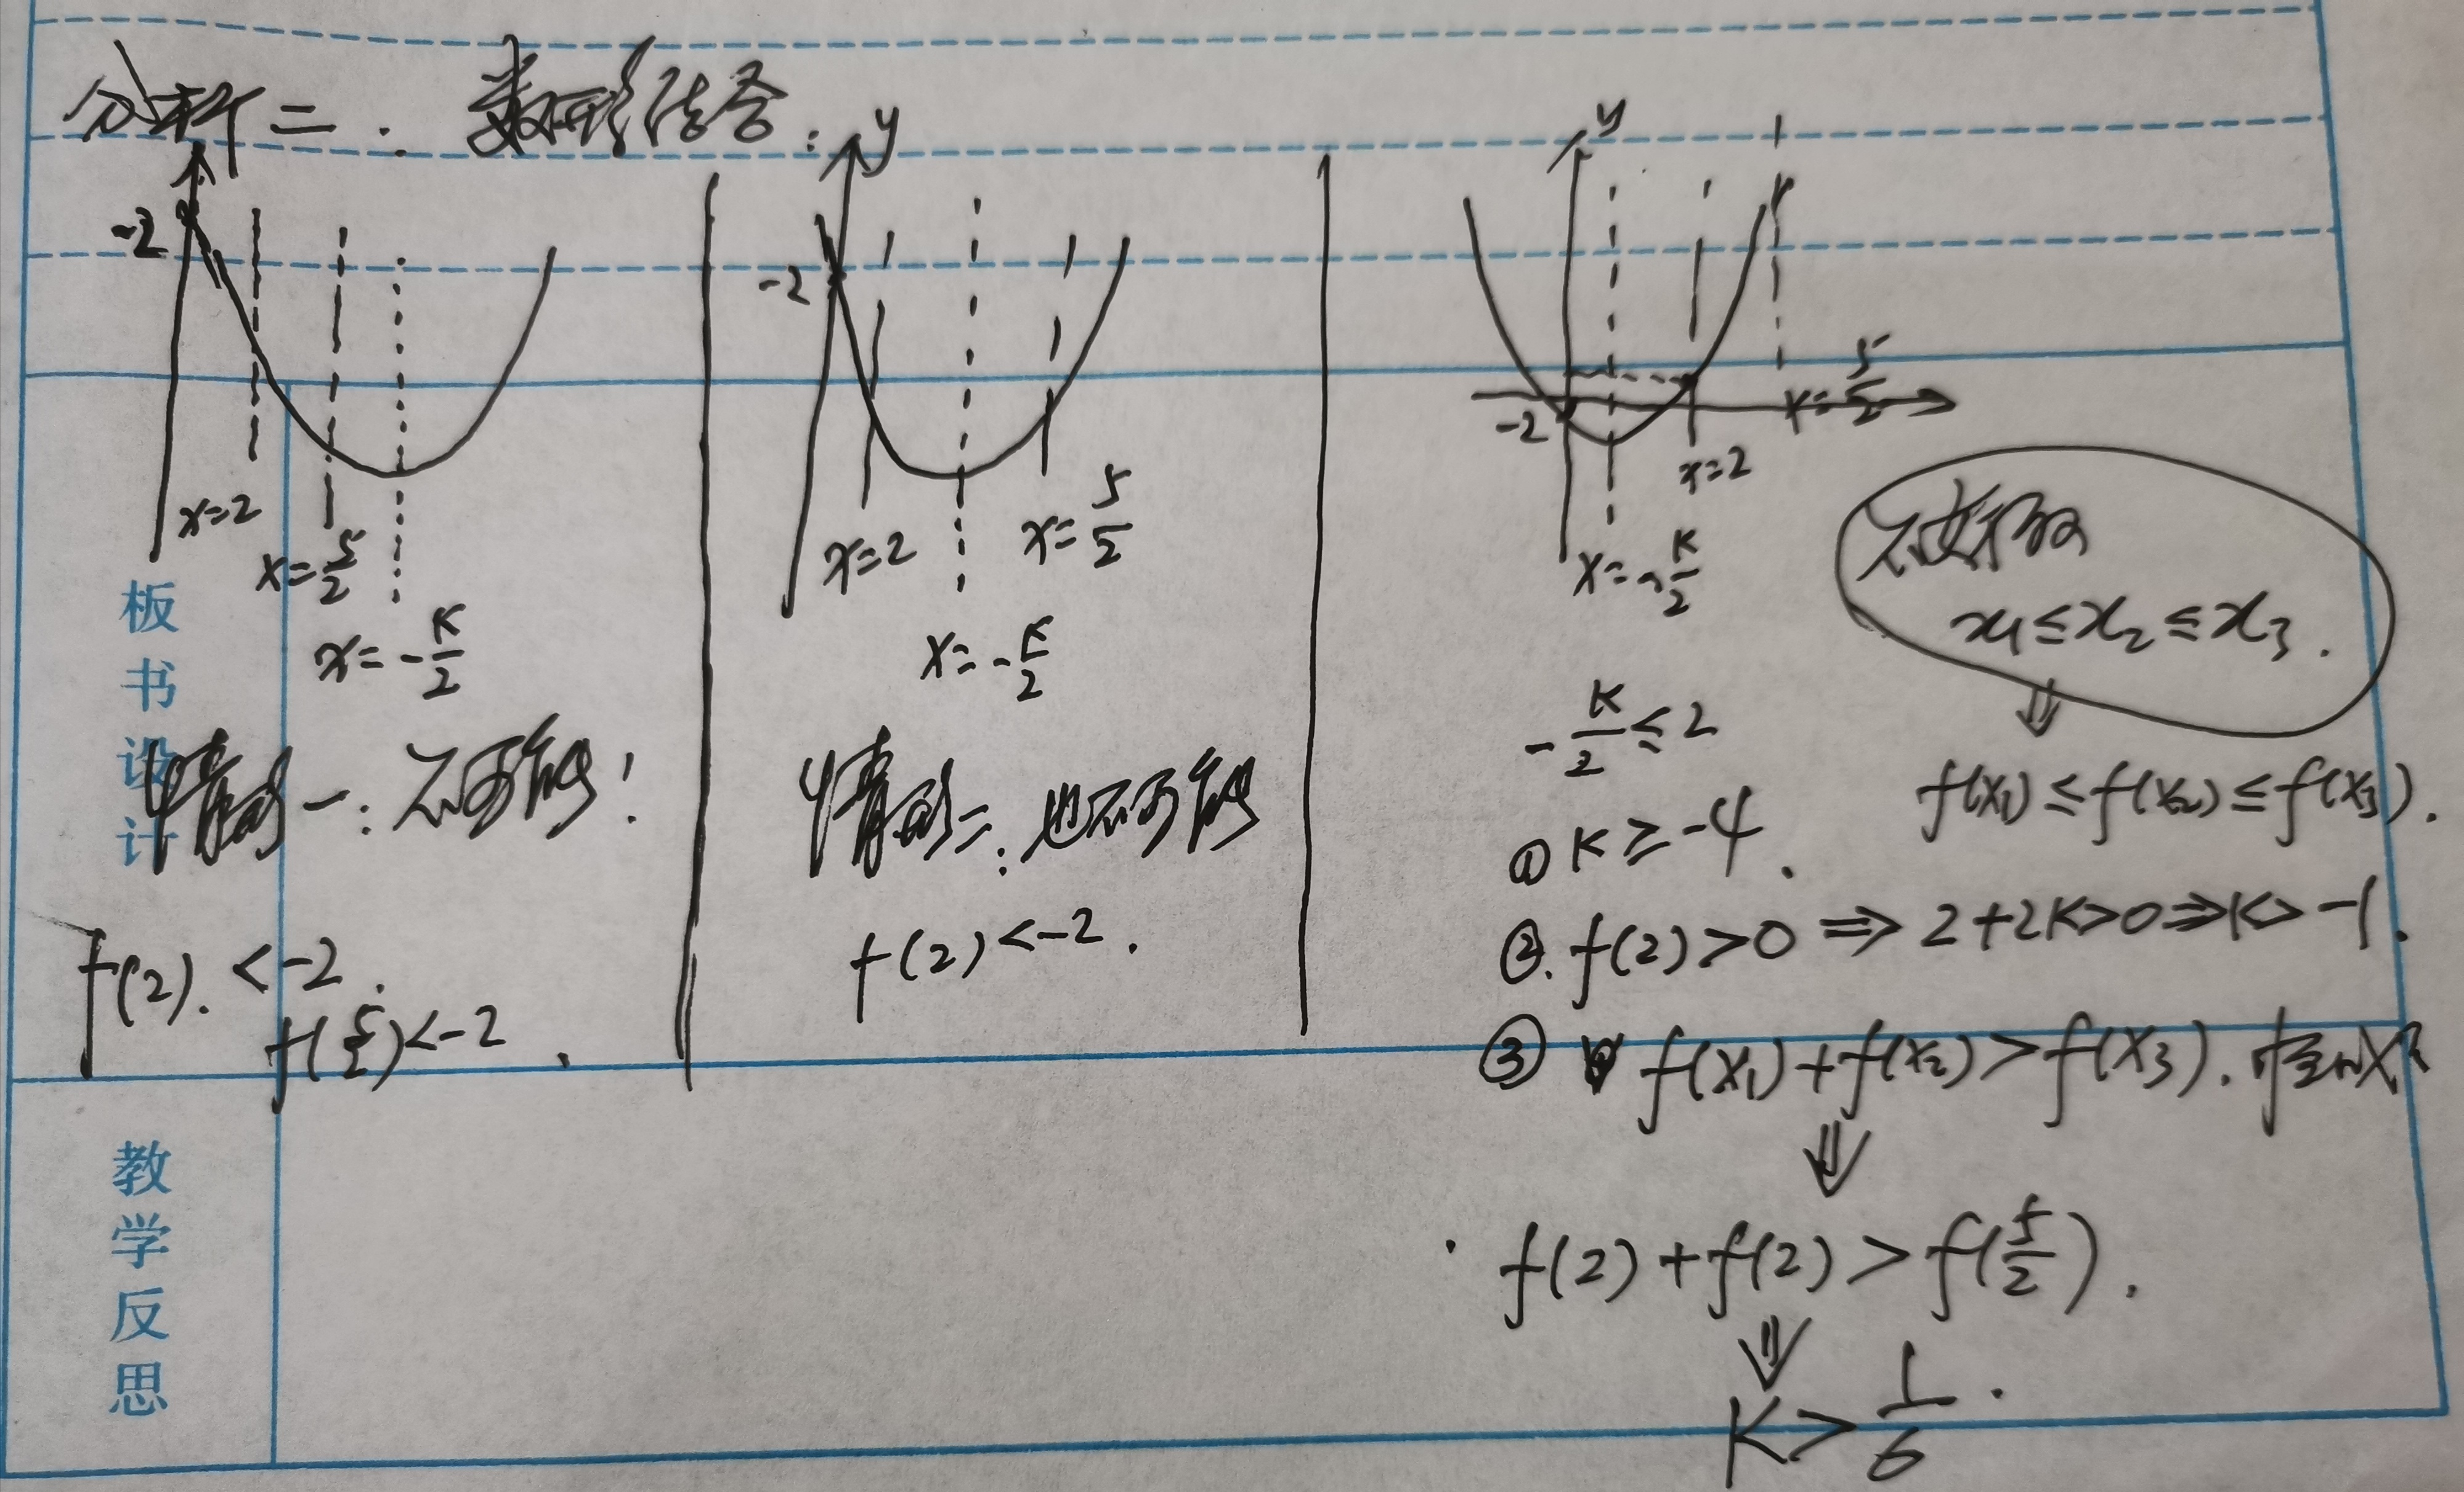 分析二：数形结合：
-2
x=2
x=5/2
x=-k/2
情形一：不可能！
f(2)<-2.
f(5/2)<-2.
y
-2
x=2
x=5/2
x=-k/2
情形二：也不可能
f(2)<-2.
y
-2
x=5/2
x=2
x=-k/2
不妨取
x1≤x2≤x3.
⇓
f(x1)≤f(x2)≤f(x3).
-k/2≤2
①k≥-4.
②.f(2)>0⇒2+2k>0⇒k>-1.
③ f(x1)+f(x2)>f(x3).
⇓
f(2)+f(2)>f(5/2).
⇓
k>1/6.
板书设计
教学反思